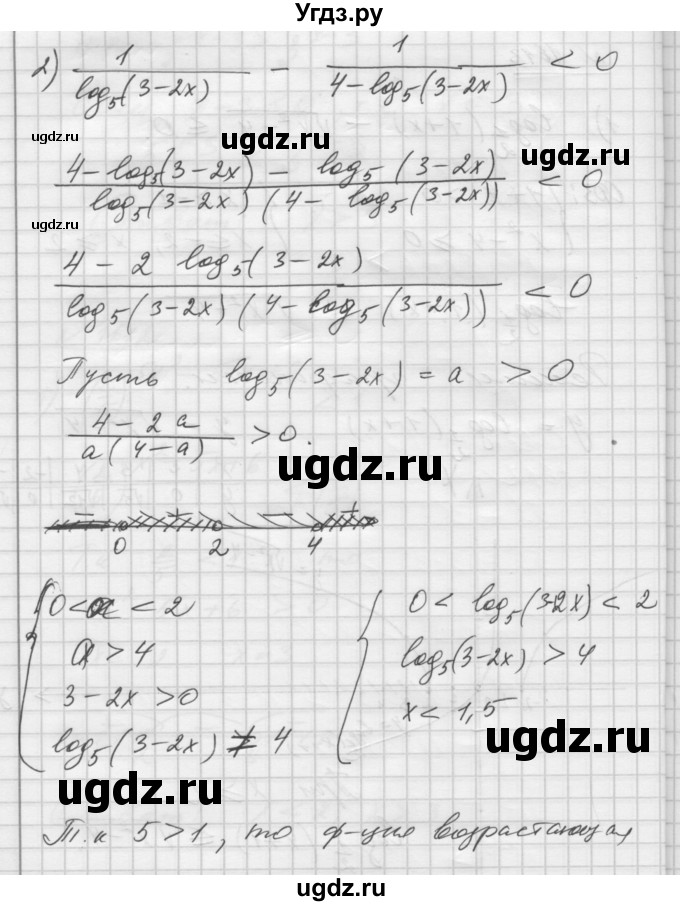 Угдз.ру
2) 1/log₅(3-2x) - 1/(4-log₅(3-2x)) < 0
ugdz.ru
ugdz.ru
(4-log₅(3-2x) - log₅(3-2x))/(log₅(3-2x)(4-log₅(3-2x))) < 0
ugdz.ru
ugdz.ru
(4-2 log₅(3-2x))/(log₅(3-2x)(4-log₅(3-2x))) < 0
ugdz.ru
Пусть log₅(3-2x) = a > 0
(4-2a)/(a(4-a)) > 0.
ugdz.ru
- + - +
0 2 4
ugdz.ru
{ 0 < a < 2 { 0 < log₅(3-2x) < 2
a > 4 log₅(3-2x) > 4
3-2x > 0 x < 1,5
log₅(3-2x) ≠ 4
ugdz.ru
ugdz.ru
Т.к 5 > 1, то ф-ция возрастающая
ugdz.ru
ugdz.ru